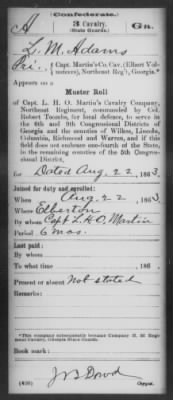 Confederate.
A 3 Cavalry. Ga.
(State Guards.)
L. M. Adams
Pri., Capt. Martin's Co. Cav. (Elbert Vol-
unteers), Northeast Reg't, Georgia.*
Appears on a
Muster Roll
of Capt. L. H. O. Martin's Cavalry Company,
Northeast Regiment, commanded by Col.
Robert Toombs, for local defence, to serve
in the 6th and 9th Congressional Districts of
Georgia and the counties of Wilkes, Lincoln,
Columbia, Richmond and Warren, and if this
field does not embrace one-fourth of the State,
in the remaining counties of the 5th Congres-
sional District,
for Dated Aug. 22, 1863
Joined for duty and enrolled:
When Aug. 22, 1863
Where Elberton
By whom Capt L.H.O. Martin
Period 6 mos.
Last paid:
By whom
To what time , 186 .
Present or absent Not stated
Remarks:
*This company subsequently became Company H 3d Regi-
ment Cavalry, Georgia State Guards.
Book mark:
Copyist.